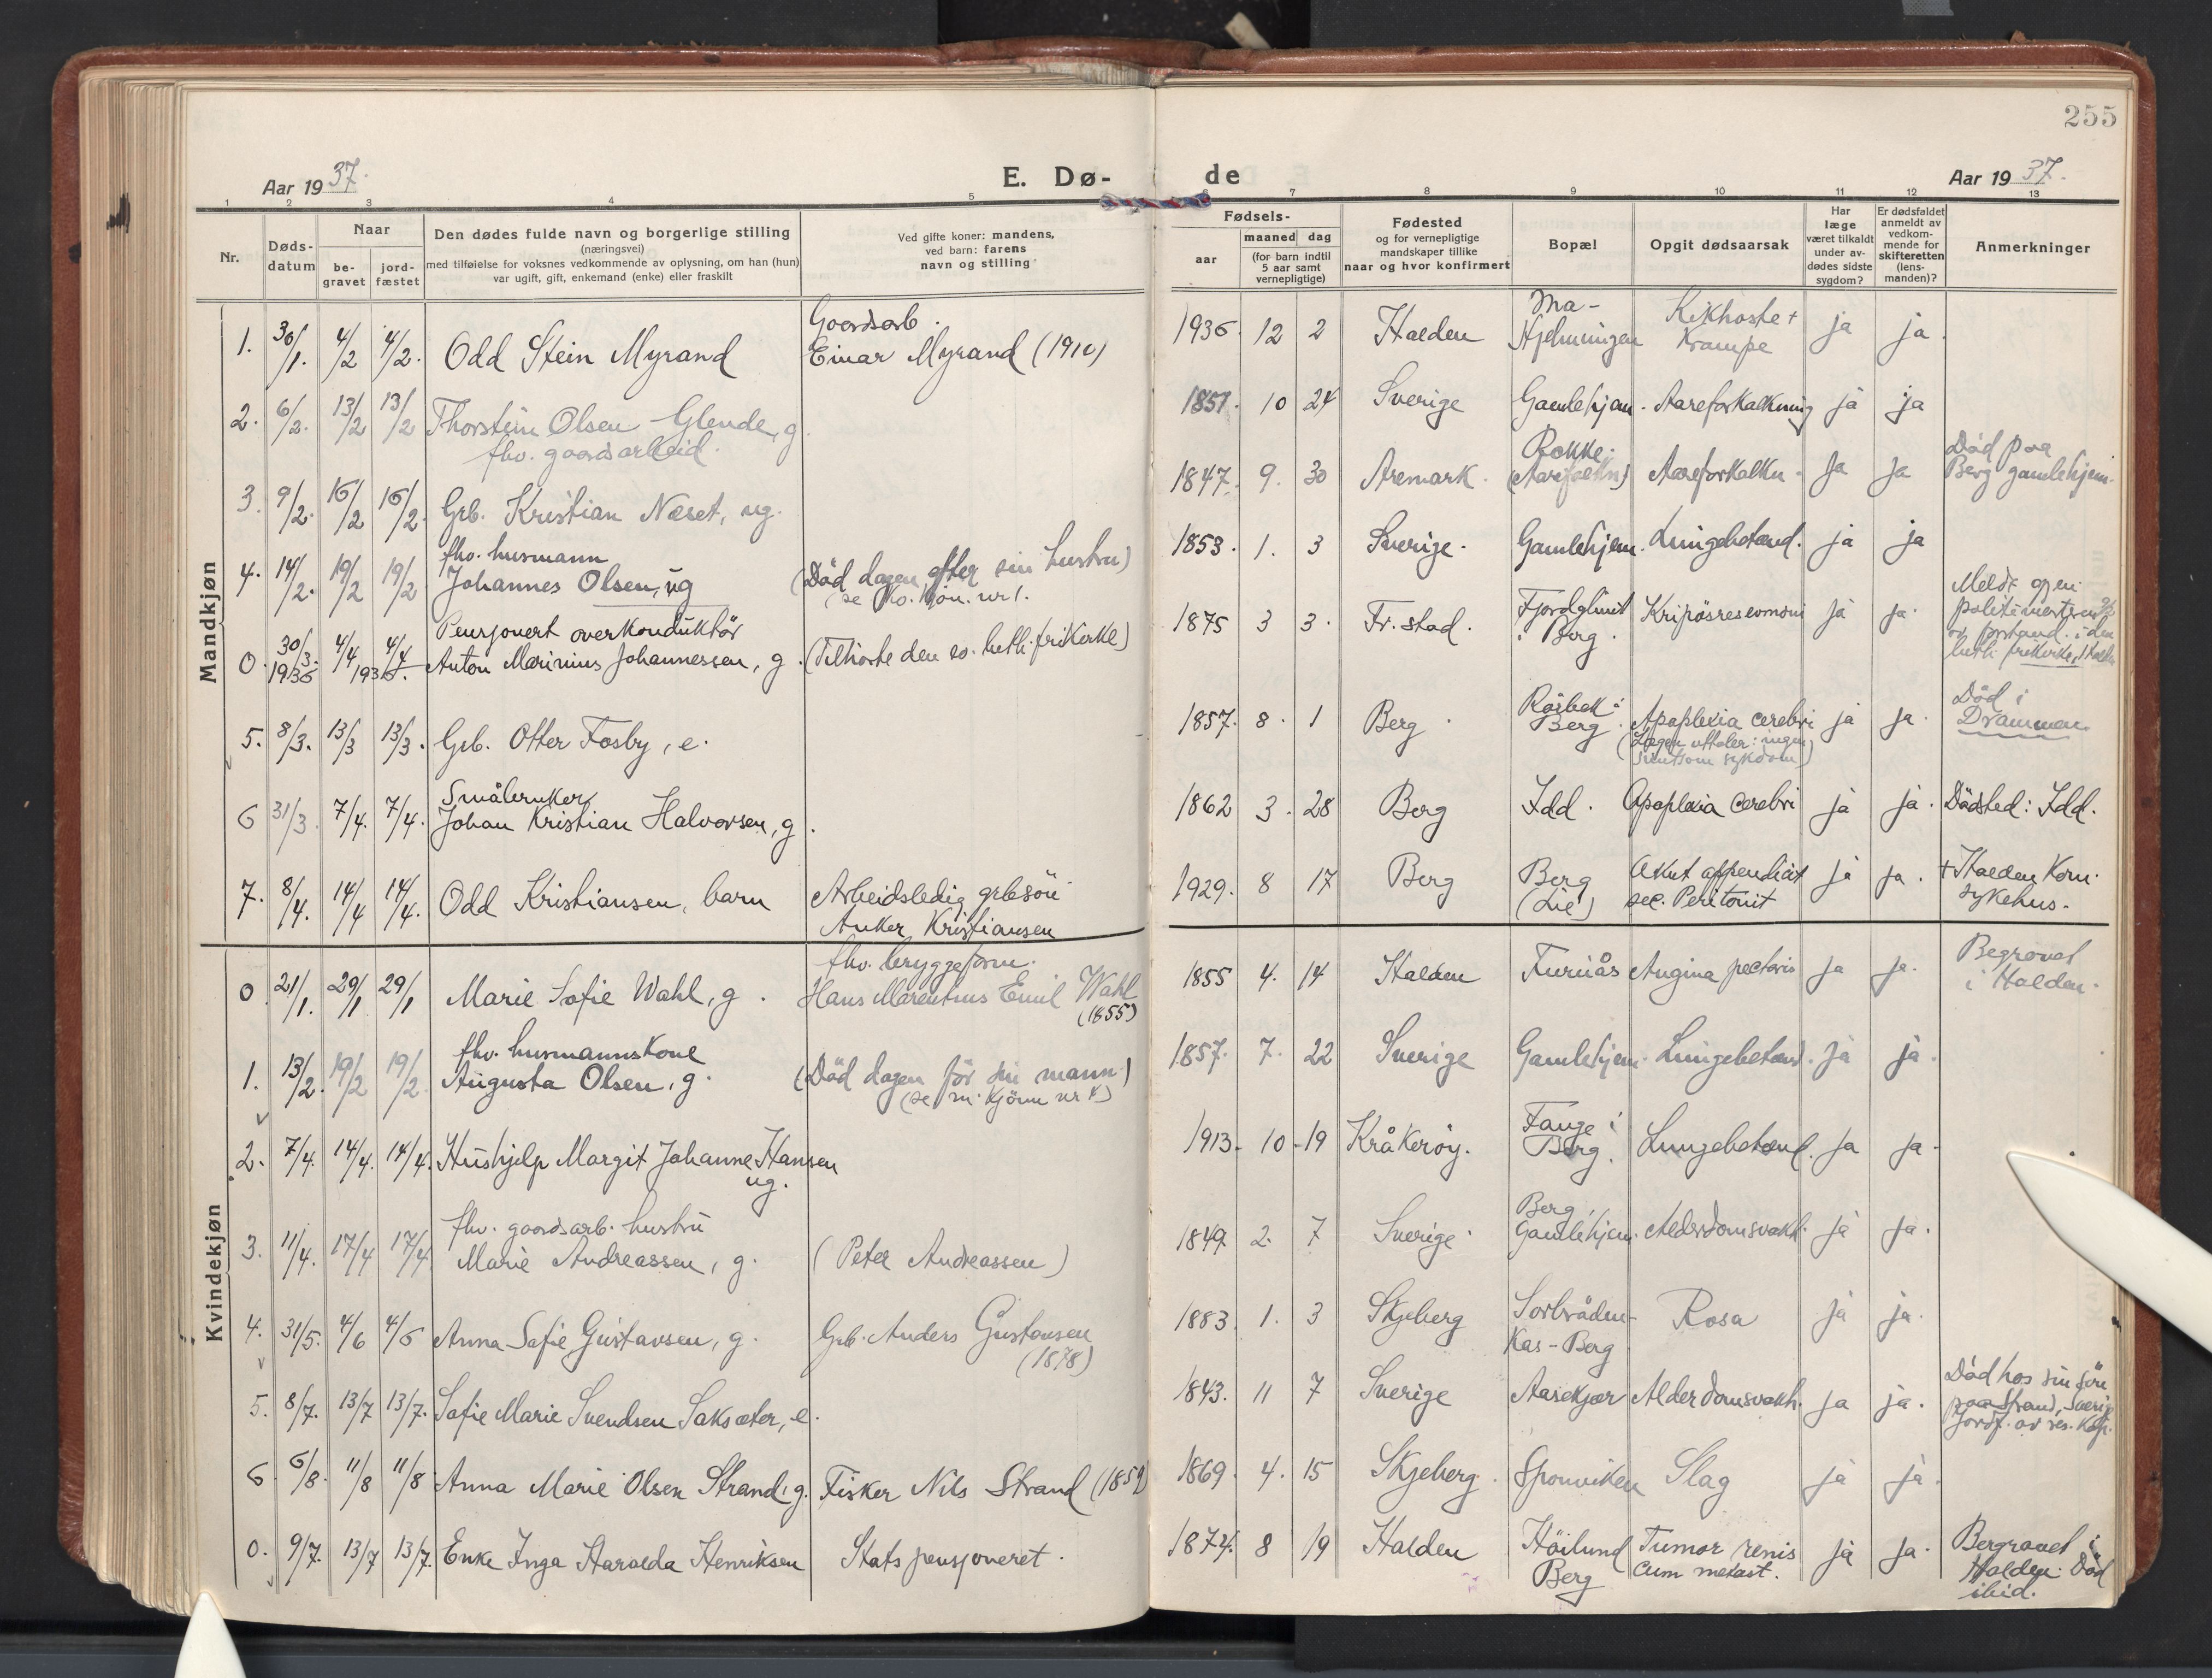 255
Aar 1937.
E. Dø-
de
Aar 1937.
1 2 3 4 5 6 7 8 9 10 11 12 13
Nr.
Døds-
datum
Naar
be-
gravet
jord-
fæstet
Den dødes fulde navn og borgerlige stilling
(næringsvei)
med tilføielse for voksnes vedkommende av oplysning, om han (hun)
var ugift, gift, enkemand (enke) eller fraskilt
Ved gifte koner: mandens,
ved barn: farens
navn og stilling
Fødsels-
aar
maaned dag
(for barn indtil
5 aar samt
vernepligtige)
Fødested
og for vernepligtige
mandskaper tillike
naar og hvor konfirmert
Bopæl
Opgit dødsaarsak
Har
læge
været tilkaldt
under av-
dødes sidste
sygdom?
Er dødsfaldet
anmeldt av
vedkom-
mende for
skifteretten
(lens-
manden)?
Anmerkninger
Mandkjøn
1. 30/1. 4/2 4/2. Odd Stein Myrand
Gaardsarb.
Einar Myrand (1910)
1936. 12 2 Halden
Kikhoste +
Krampe
ja ja.
2. 6/2. 13/2 13/2 Thorstein Olsen Glende, g.
fhv. gaardsarbeid.
1851. 10 24 Sverige Gamlehjem. Aareforkalkning ja ja
3. 9/2. 16/2 16/2. Grb. Kristian Næset, ug.
1847. 9. 30 Aremark.
Rokke.
Aareforkalkn. ja ja
Død paa
Berg gamlehjem.
4. 14/2. 19/2 19/2
fhv. husmann
Johannes Olsen, ug
(Død dagen efter sin hustru)
(se kv. kjøn. nr 1.
1853. 1. 3 Sverige. Gamlehjem. Lungebetænd. ja ja
0. 30/3. 1936 4/4 4/4 1936.
Pensjonert overkonduktør
Anton Marinius Johannessen, g.
(Tilhørte den ev. luth. frikirke)
1875 3 3. Fr.stad.
Fjordglimt
i Berg.
ja ja.
5. 8/3. 13/3 13/3. Grb. Otter Fosby, e.
1857. 8. 1 Berg.
Røibek i
Berg.
Apoplexia cerebri
ja ja.
Død i
Drammen
6 31/3. 7/4. 7/4.
Småbruker
Johan Kristian Halvorsen, g.
1862 3. 28 Berg Idd. Apoplexia cerebri ja ja. Dødsted: Idd.
7. 8/4. 14/4 14/4. Odd Kristiansen, barn
Arbeidsledig grbsøn
Anker Kristiansen
1929. 8 17 Berg
Berg
(Lie)
Akut appendicit
sec. Peritonit
ja ja.
+ Halden Kom.
sykehus.
Kvindekjøn
0. 21/1. 29/1 29/1 Marie Sofie Wahl, g.
fhv. bryggeform.
Hans Marentius Emil Wahl
(1855)
1855 4. 14 Halden Furuås Angina pectoris ja ja.
Begravet
i Halden.
1. 13/2. 19/2 19/2.
fhv. husmannskone
Augusta Olsen, g.
(Død dagen før sin mann)
(se m. kjønn nr 4)
1857. 7. 22 Sverige Gamlehjem. Lungebetænd. ja ja.
2. 7/4. 14/4. 14/4. Hushjelp Margit Johanne Hansen
ug.
1913. 10 19 Kråkerøy.
Fange i
Berg.
Lungebetænd. ja ja.
3. 11/4. 17/4 17/4
fhv. gaardsarb. hustru
Marie Andreassen, g.
(Peter Andreassen)
1849. 2. 7 Sverige.
Berg
Gamlehjem. Alderdomsvakh. ja ja.
4. 31/5. 4/6 4/6 Anna Sofie Gustavsen, g.
Grb. Anders Gustavsen
(1878)
1883. 1. 3 Skjeberg
Sorbråden-
Kas-Berg
Rosa ja ja.
5. 8/7. 13/7 13/7. Sofie Marie Svendsen Saksæter, e.
1843. 11 7 Sverige Aarekjær Alderdomsvakh. ja ja.
Død hos sin søn
paa Strand, Sverig
Jordf. av res. Kap.
6. 6/8. 11/8 11/8 Anna Marie Olsen Strand, g. Fisker Nils Strand (1859)
1869. 4. 15 Skjeberg. Sponviken Slag ja ja.
0. 9/7. 13/7 13/7. Enke Inga Haralda Henriksen Statspensjoneret.
1874. 8 19 Halden
Høilund
Berg
Tumor renis
cum metast.
ja ja.
Bergravet i
Halden. Død
ibid.